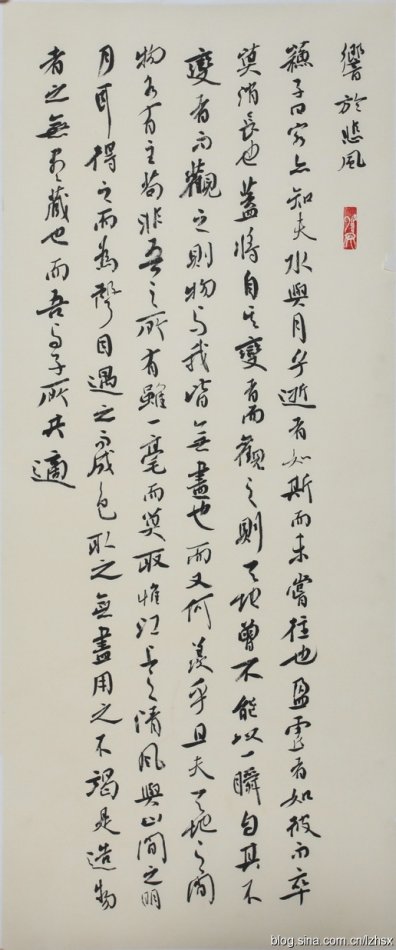 響於悲風
蘇子曰客亦知夫水與月乎逝者如斯而未嘗往也盈虛者如彼而卒
莫消長也蓋將自其變者而觀之則天地曾不能以一瞬自其不
變者而觀之則物与我皆無盡也而又何羨乎且夫天地之間
物各有主苟非吾之所有雖一毫而莫取惟江上之清風與山間之明
月耳得之而為聲目遇之而成色取之無盡用之不竭是造物
者之無尽藏也而吾与子所共適
blog.sina.com.cn/lzhsx